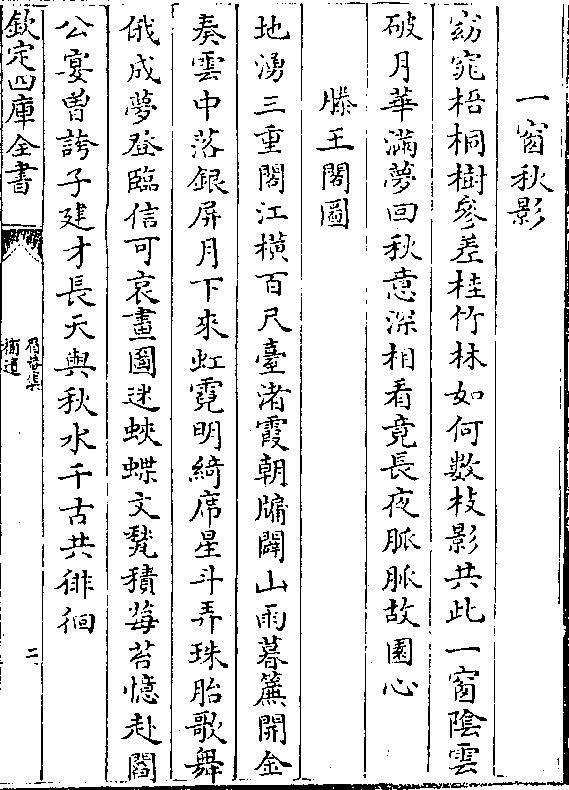 一窗秋影
窈窕梧桐樹參差桂竹林如何數枝影共此一窗隂雲
破月華滿夢回秋意深相看竟長夜脈脈故園心
滕王閣圖
地湧三重閣江横百尺臺渚霞朝牖闢山雨暮簾開金
奏雲中落銀屏月下來虹霓明綺席星斗弄珠胎歌舞
俄成夢登臨信可哀畫圖迷蛺蝶文甃積莓苔憶赴閻
公宴曽誇子建才長天與秋水千古共徘徊
欽定四庫全書
摘遺
二